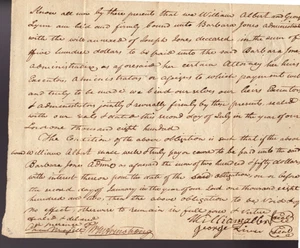 Know all men by these present that we William Albert and George
Liver are held and firmly bound unto Barbara Jones Administratrix
with the will annexed of Joseph Jones deceased in the sum of
five hundred dollars to be paid unto the said Barbara Jones
Administratrix as aforesaid her certain Attorney her heirs
Executors administrators or assigns to which payment well
and truly to be made we bind ourselves our heirs Executors
& administrators jointly & severally firmly by these presents sealed
with our seals & dated the second day of July in the year of our
Lord one thousand eight hundred
The Condition of the above obligation is such that if the above
William Albert shall well & truly pay or cause to be paid unto the said
Barbara Jones Admx as aforesaid the sum of two hundred & fifty dollars
with interest thereon from the date of the said obligation on or before
the second day of January in the year of our Lord one thousand eight
hundred and two then the above obligation to be void &
of effect otherwise to remain in full force & virtue
sealed & delivered
in presence of
George Liver